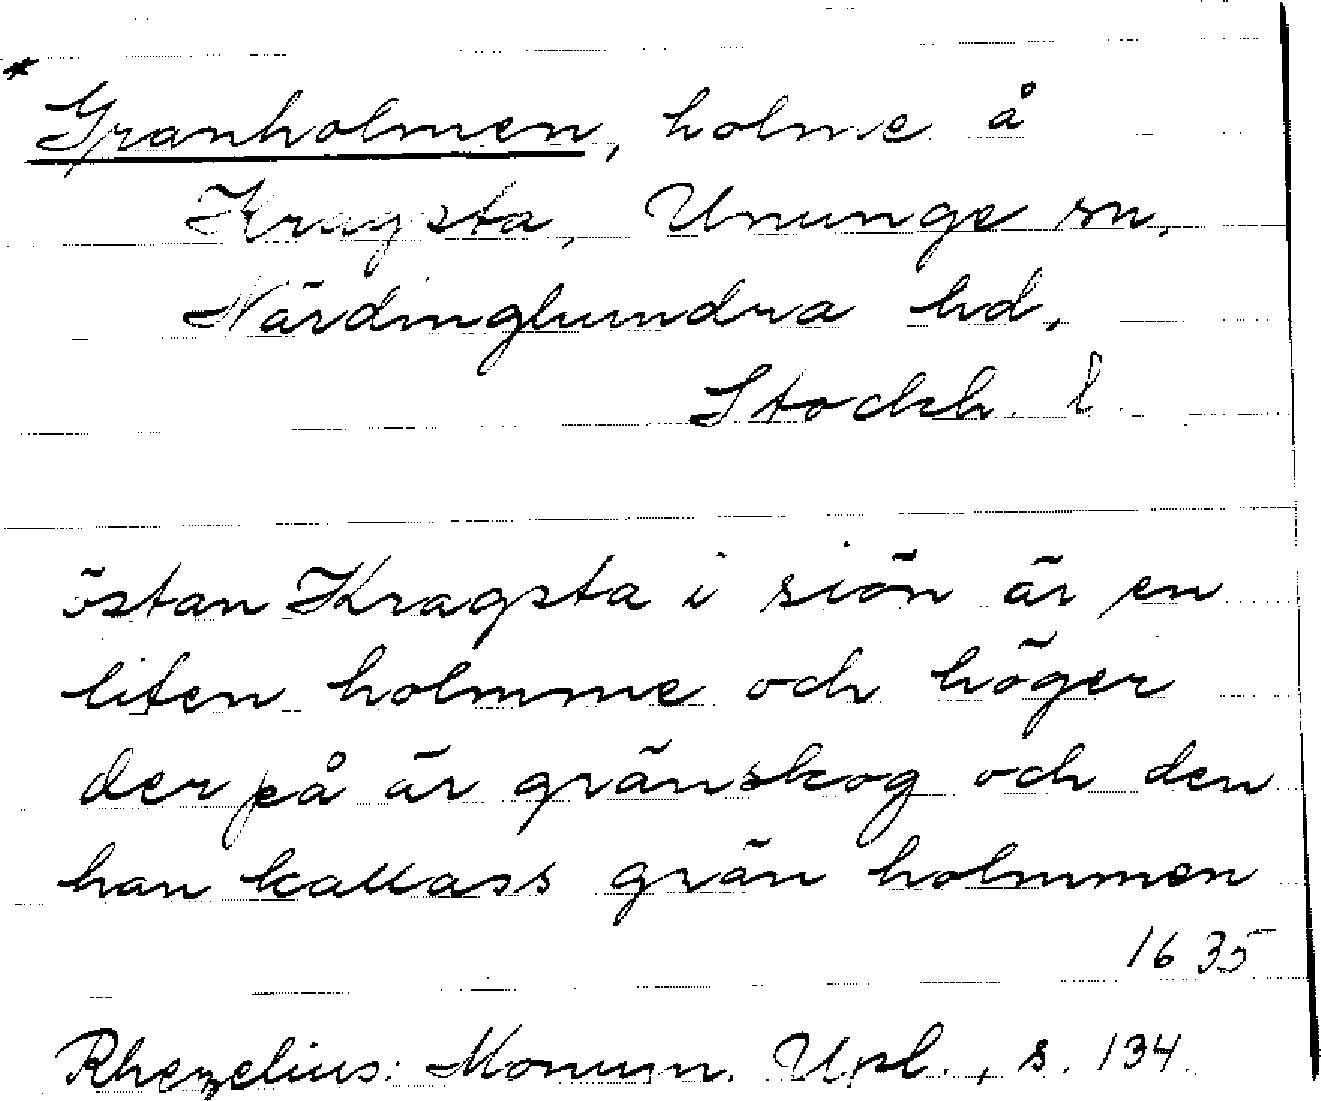 * Granholmen, holme å
Kragsta, Ununge sn,
Närdinghundra hd,
Stockh. l.
östan Kragsta i siön är en
liten holmme och höger
der på är gränskog och den
han kallass grän holmmen
1635
Rhezelius: Monum. Upl., s. 134.